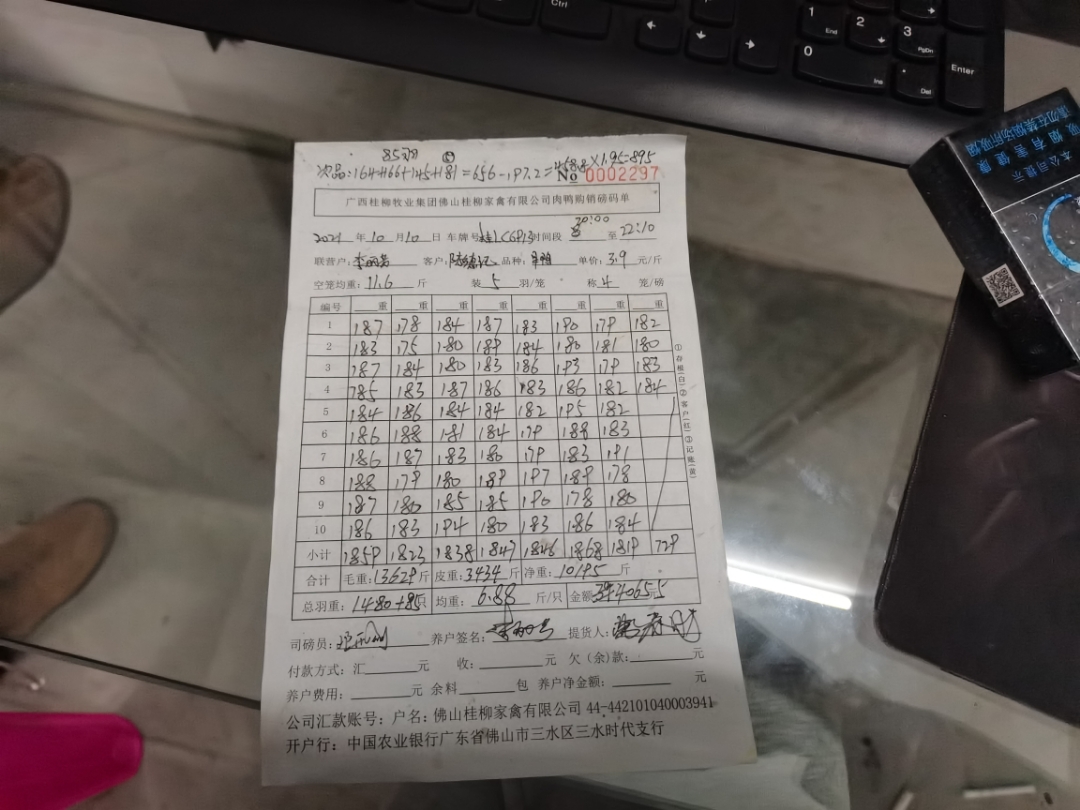 Ctrl
1 End
2
3 PgDn
0 Ins
. Del
Enter
请勿在禁烟场所吸烟
吸烟有害健康
本公司提示
85羽
次品:164+166+145+181=656-197.2=458.8×1.95=895
No 0002297
广西桂柳牧业集团佛山桂柳家禽有限公司肉鸭购销磅码单
年 10 月 10 日 车牌号 时间段 20:00 至 22:10
联营户: 客户: 品种: 单价: 3.9 元/斤
空笼均重: 11.6 斤 装 5 羽/笼 称 4 笼/磅
编号 重 重 重 重 重 重 重 重
1 187 178 184 187 183 190 179 182
2 183 175 180 189 184 180 181 180
3 187 184 180 183 186 193 179 183
4 185 183 187 186 183 186 182 184
5 184 186 184 184 182 195 182
6 186 188 181 184 179 188 183
7 186 187 183 180 179 183 191
8 188 179 180 189 197 189 178
9 187 180 185 185 190 178 180
10 186 183 194 180 183 186 184
小计 1859 1823 1838 1847 1846 1868 1819 729
合计 毛重: 13629 斤 皮重: 3434 斤 净重: 10195 斤
总羽重: 1480+85 只 均重: 6.88 斤/只 金额
①存根(白)②客户(红)③记账(黄)
司磅员: 养户签名: 提货人:
付款方式: 汇 元 收: 元 欠(余)款: 元
养户费用: 元 余料 包 养户净金额: 元
公司汇款账号: 户名: 佛山桂柳家禽有限公司 44-442101040003941
开户行: 中国农业银行广东省佛山市三水区三水时代支行